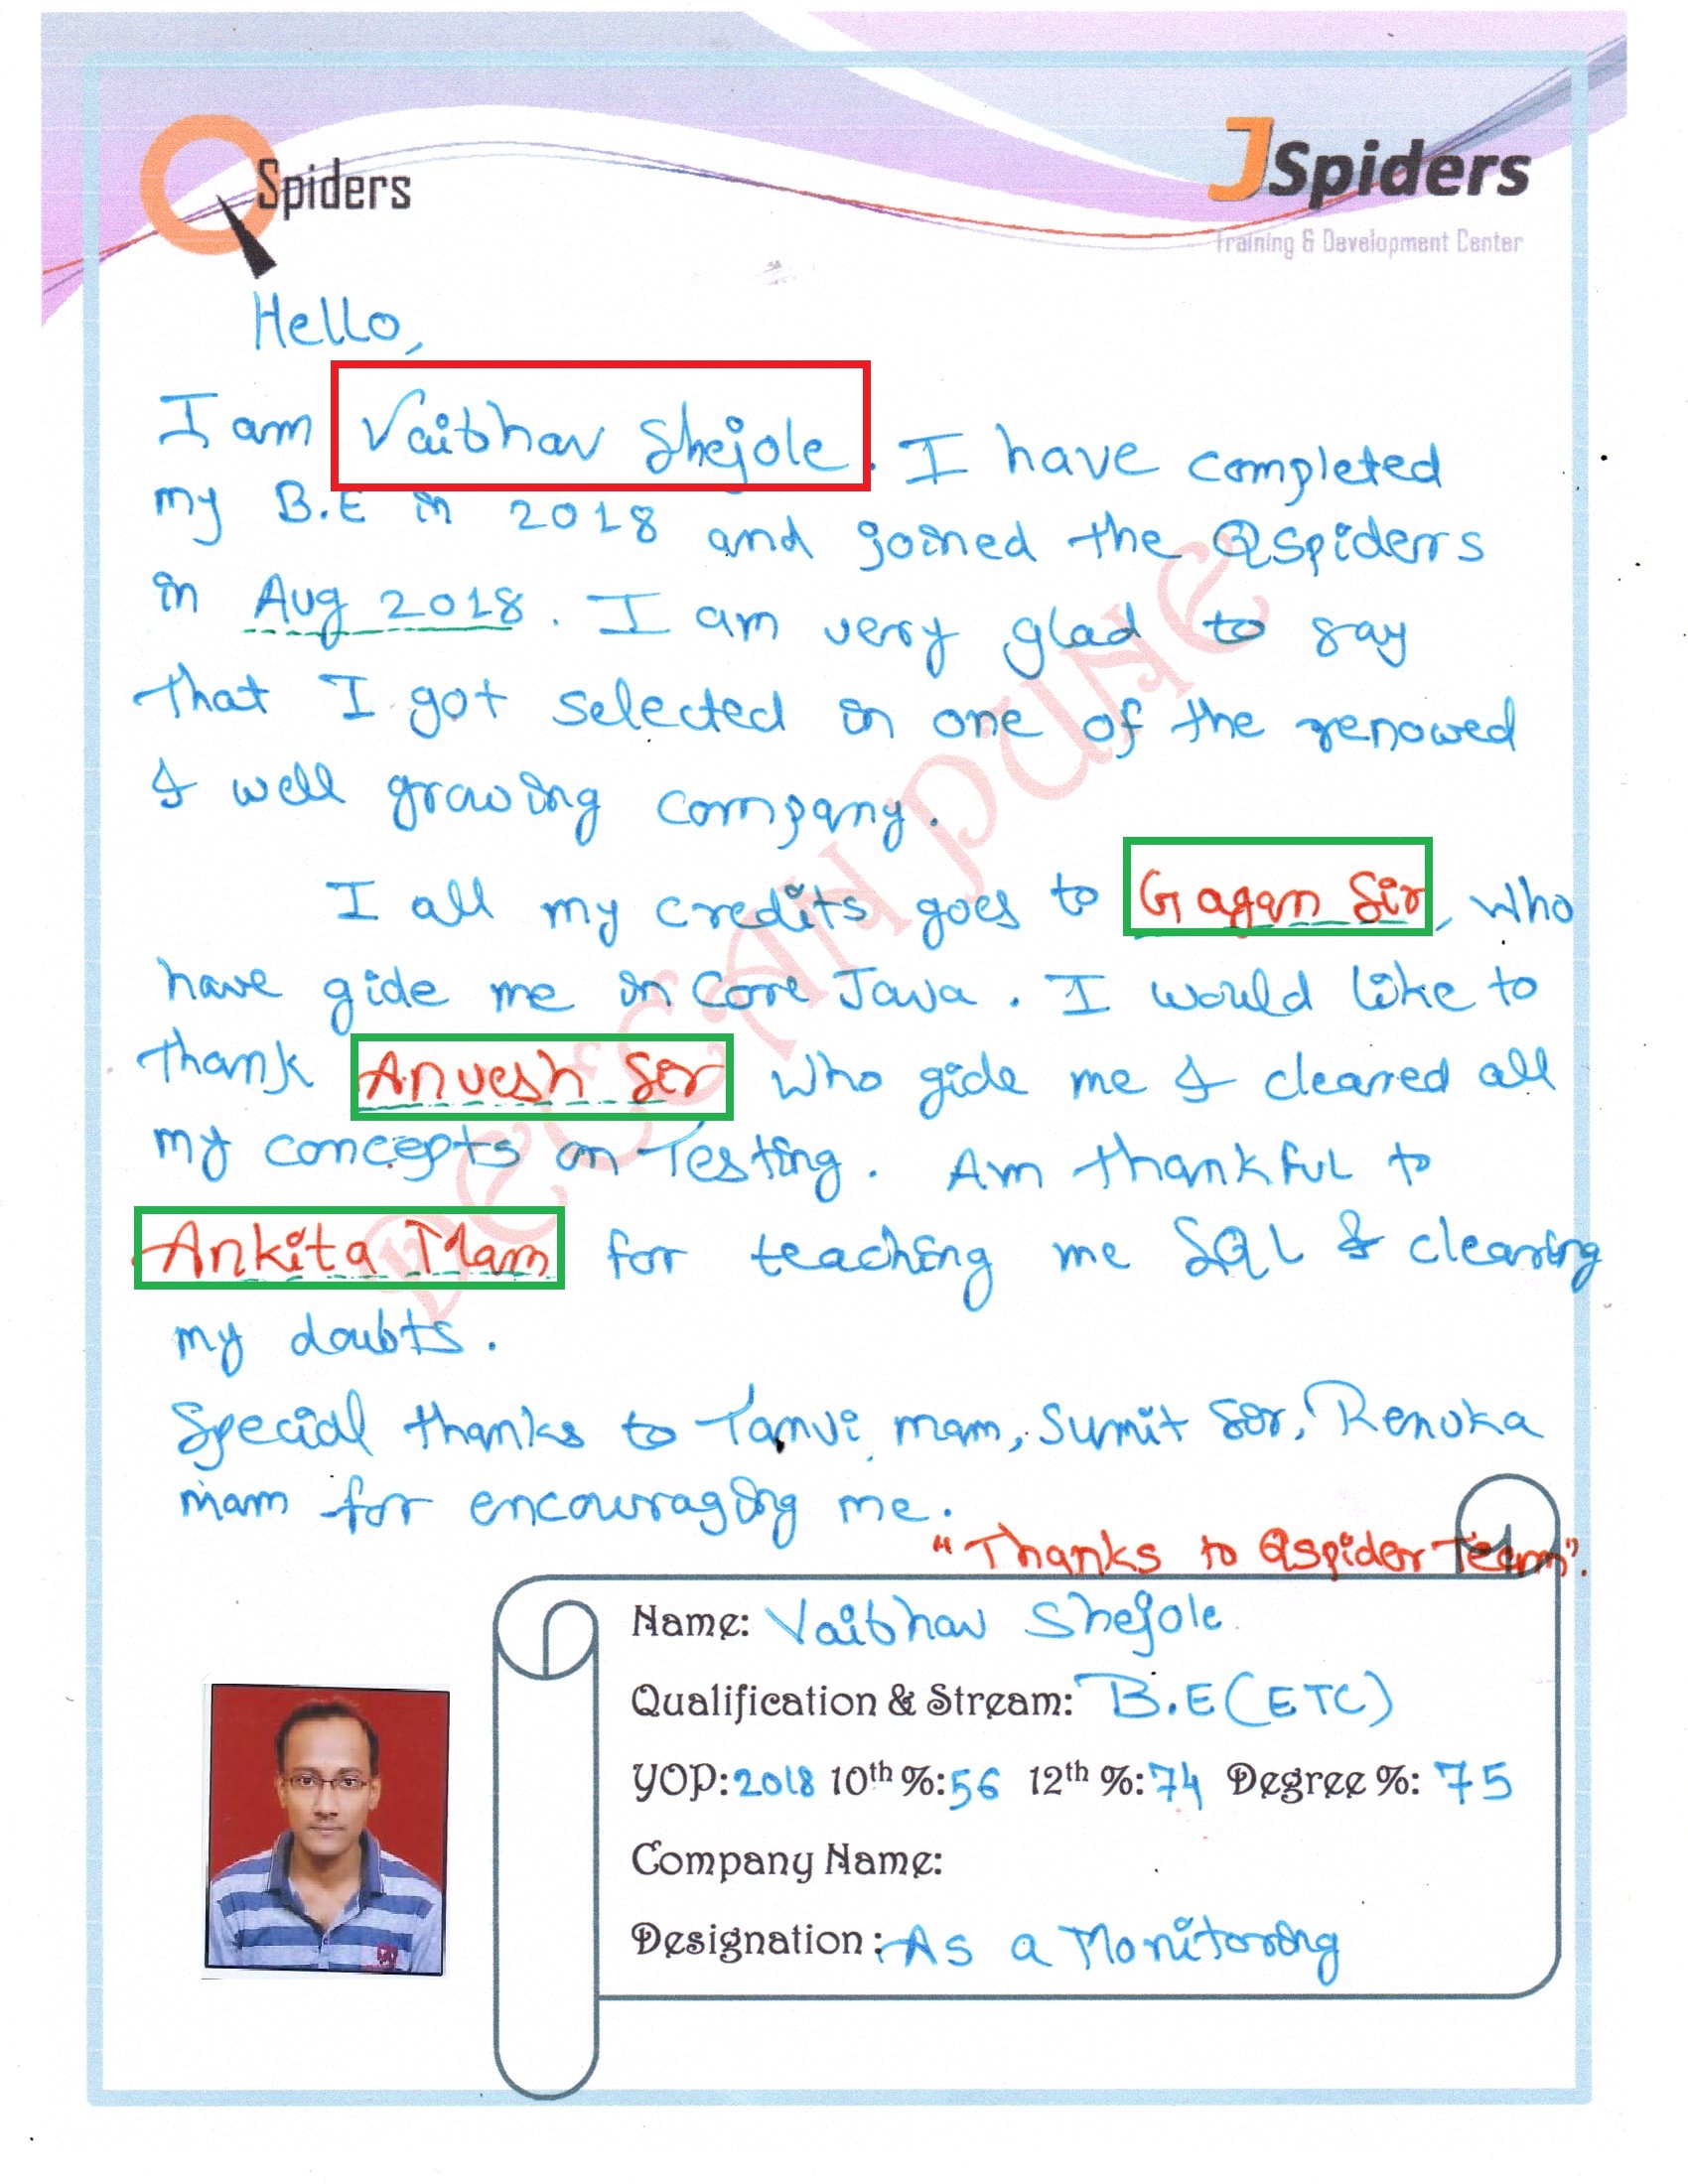 QSpiders
JSpiders
Training & Development Center
Hello,
I am Vaibhav Shejole. I have completed
my B.E in 2018 and joined the QSpiders
in Aug 2018. I am very glad to say
that I got selected in one of the renowed
& well growing company.
I all my credits goes to Gagan Sir, who
have gide me in Core Java. I would like to
thank Anvesh Sir who gide me & cleared all
my concepts on Testing. Am thankful to
Ankita Mam for teaching me SQL & clearing
my doubts.
Special thanks to Tanvi mam, Sumit Sir, Renuka
mam for encouraging me.
"Thanks to Qspider Team".
DECCAN PUNE
Name: Vaibhav Shejole
Qualification & Stream: B.E (ETC)
YOP: 2018 10th %: 56 12th %: 74 Degree %: 75
Company Name:
Designation: As a Monitoring